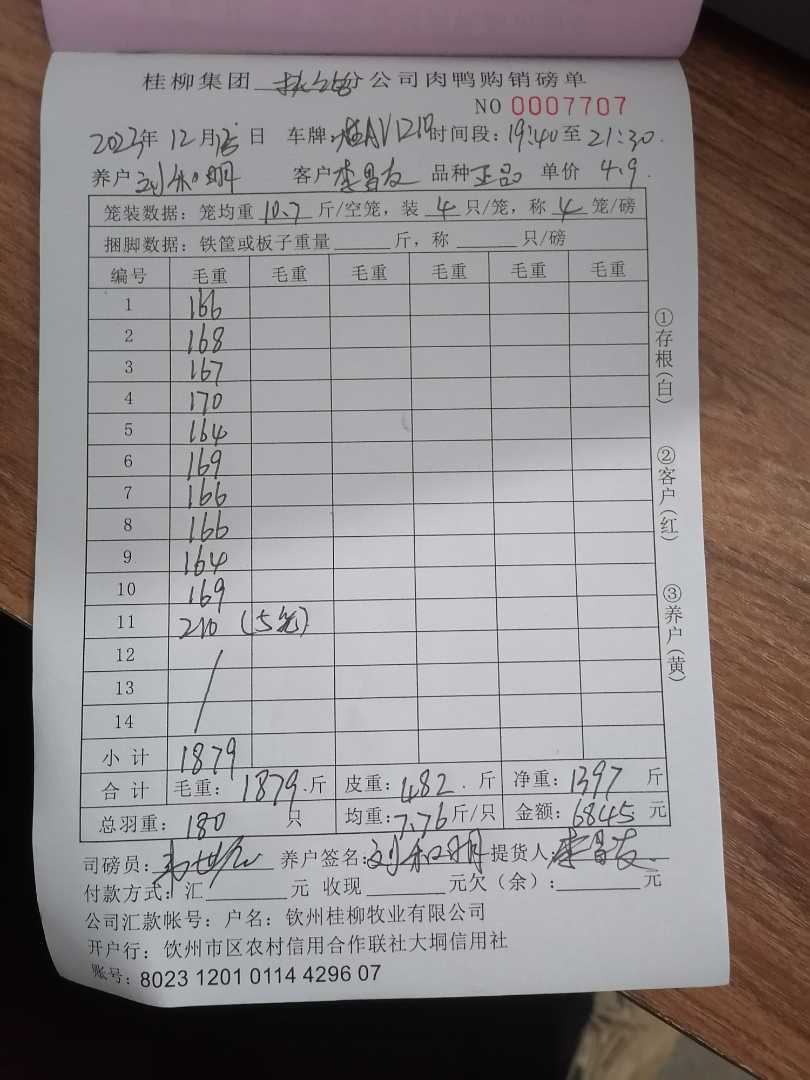 桂柳集团 分公司肉鸭购销磅单
NO 0007707
2023年 12月15日 车牌: 时间段: 19:40 至 21:30.
养户 刘和明 客户 李昌友 品种 正品 单价 4.9
笼装数据: 笼均重 10.7 斤/空笼, 装 4 只/笼, 称 4 笼/磅
捆脚数据: 铁筐或板子重量______斤, 称______只/磅
编号 毛重 毛重 毛重 毛重 毛重 毛重
1 166
2 168
3 167
4 170
5 164
6 169
7 166
8 166
9 164
10 169
11 210 (5笼)
12
13
14
小计 1879
合计 毛重: 1879.斤 皮重: 482.斤 净重: 1397 斤
总羽重: 180 只 均重: 7.76 斤/只 金额: 6845 元
司磅员: 养户签名: 刘和明 提货人: 李昌友
付款方式: 汇______元 收现______元欠(余):______元
公司汇款帐号: 户名: 钦州桂柳牧业有限公司
开户行: 钦州市区农村信用合作联社大垌信用社
账号: 8023 1201 0114 4296 07
①存根(白)
②客户(红)
③养户(黄)